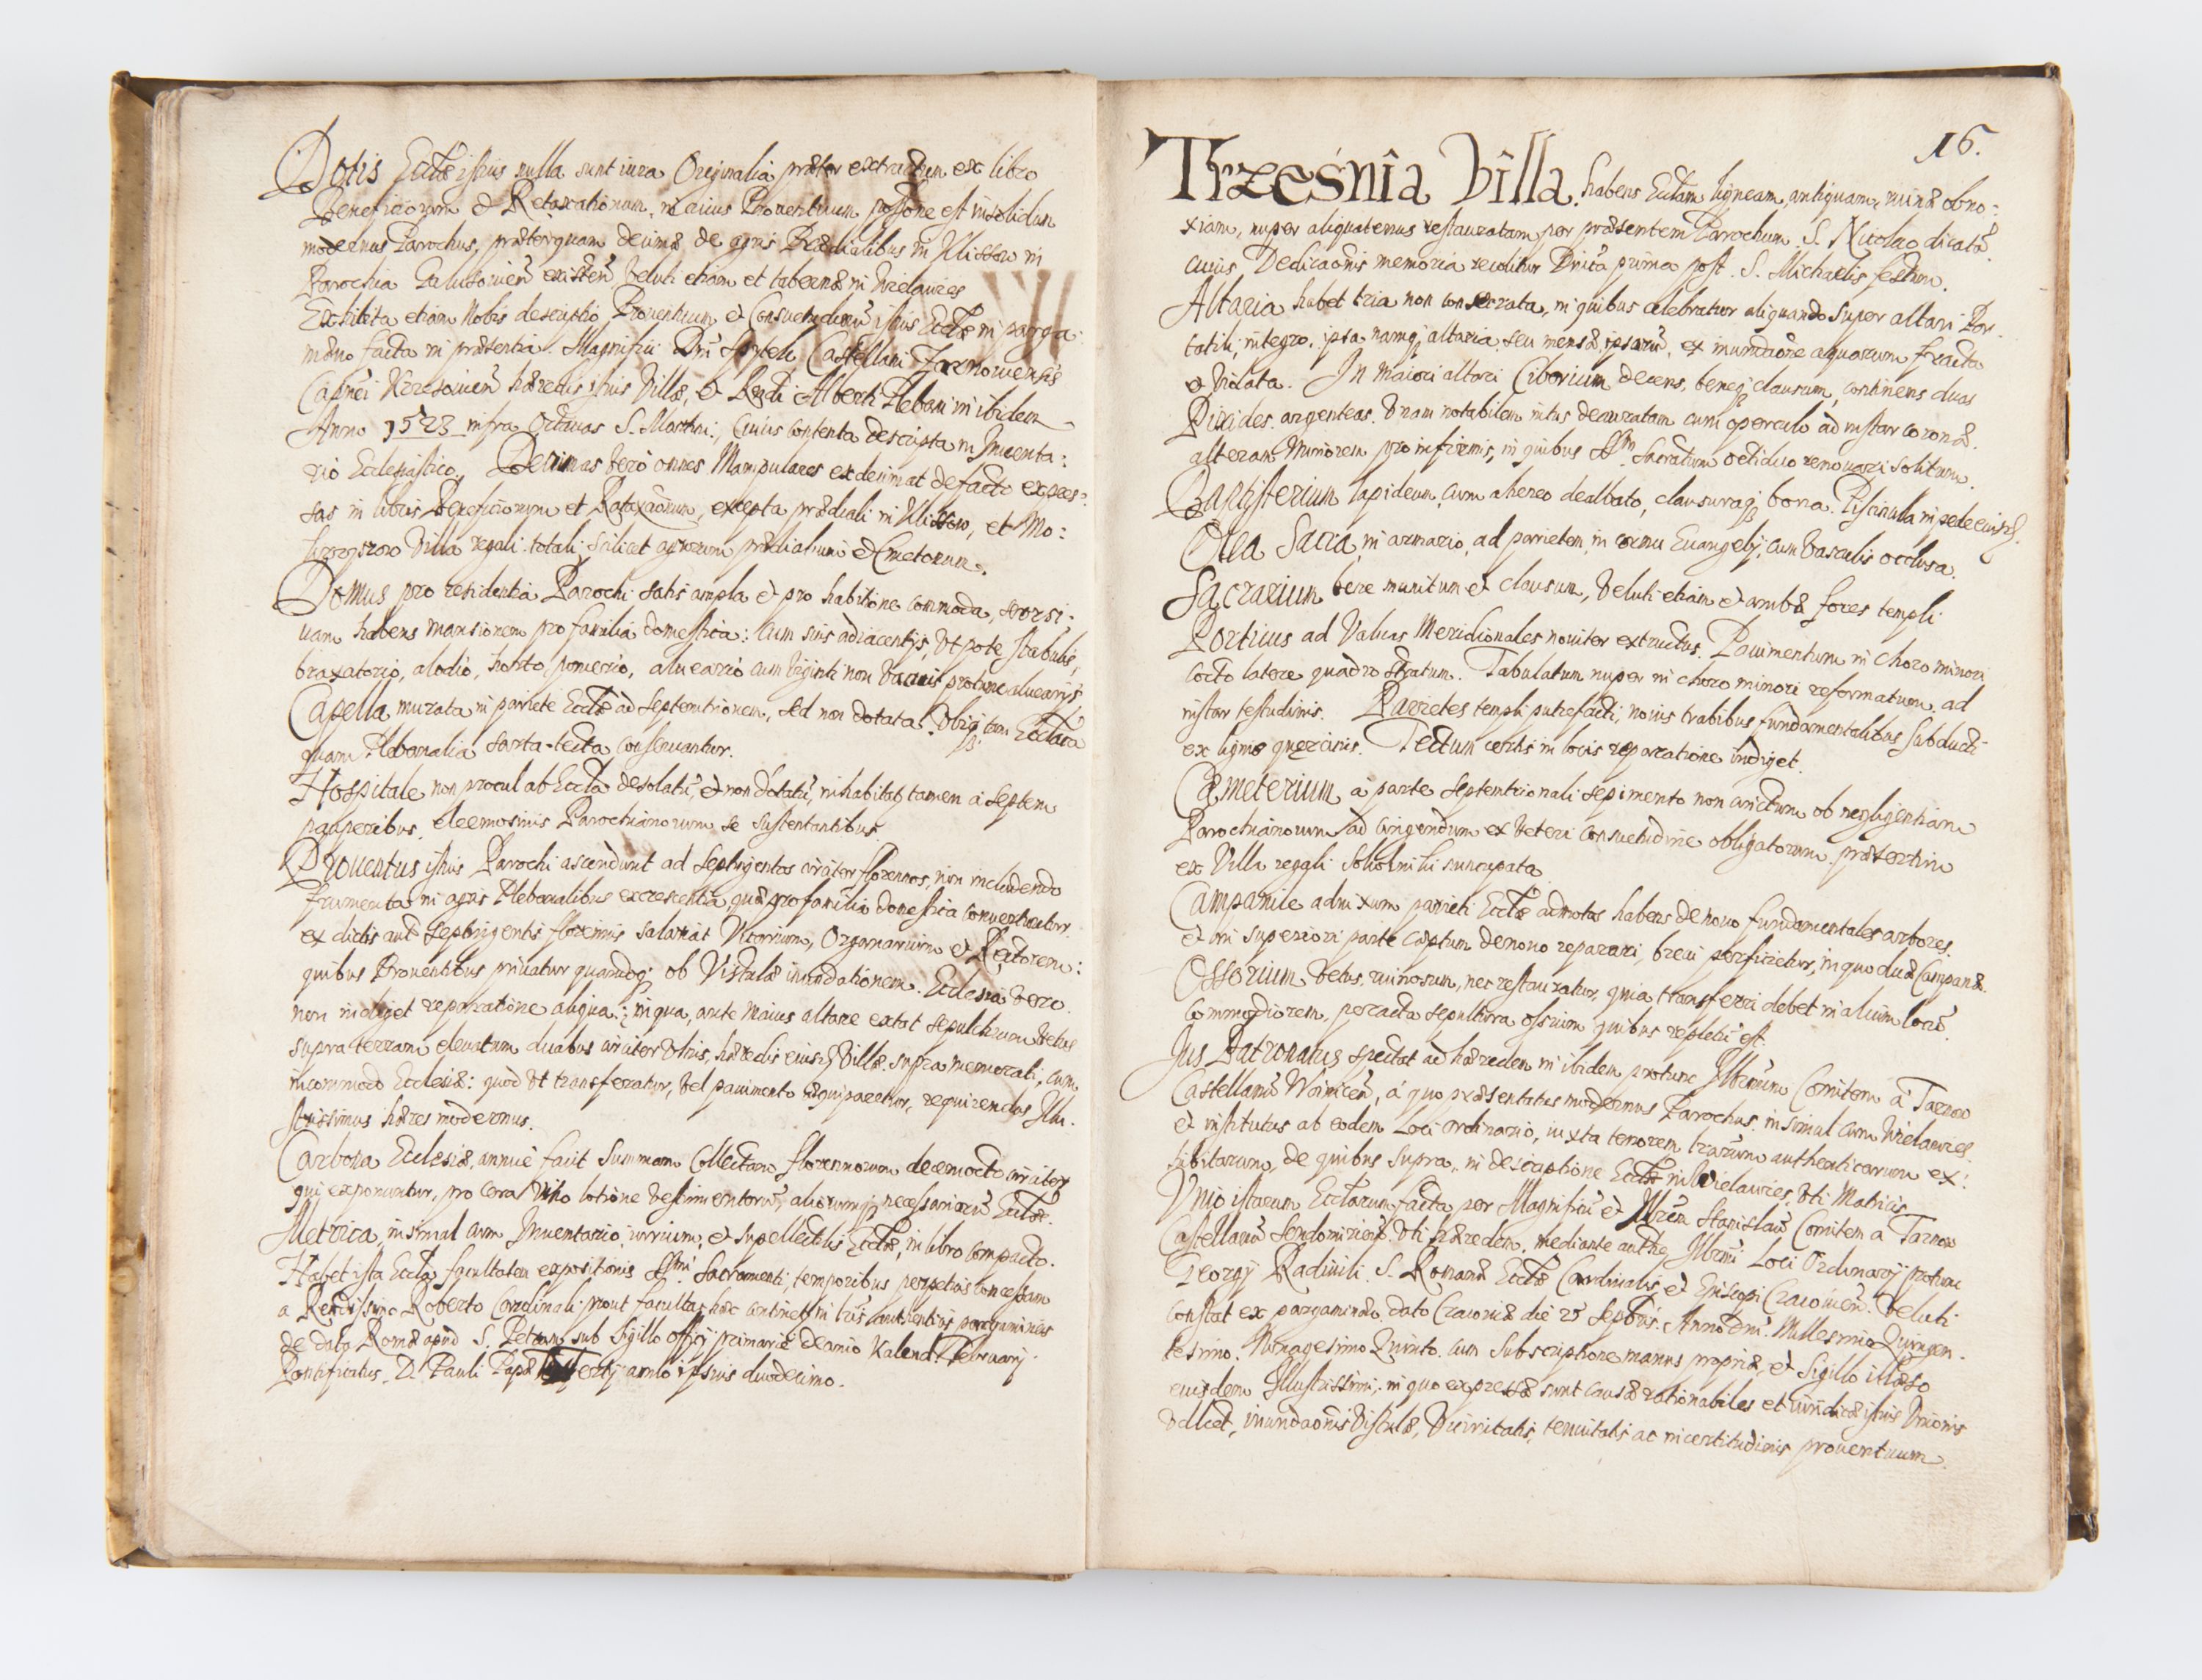 Dotis Ecclæ istius nulla sunt iura Originalia præter extractum ex libro
Beneficiorum et Retaxationum, in cuius Prouentuum possõne est insolidum
modernus Parochus, præterquam decimæ de agris Prædialibus in Klissow in
Parochia existeñ veluti etiam et tabernæ in Wielawies
Exhibita etiam Nobis descriptio Prouentuum et Consuetudinũ istius Ecclæ in parga:
meno facta in præsentia Magnifici Dñi Castellani Zarnowensis
Capnei hæredis istius Villæ, et Rendi Alberti Plebani in ibidem
Anno 1523 infra Octauas S. Martini, Cuius contenta descripta in Inuenta:
rio Ecclesiastico, Decimas vero omnes Manipulares exdecimat de facto expres:
sas in libris Beneficiorum et Rataxãonum, excepta prædiali in Klissow, et Mo:
Villa regali totali scilicet agrorum prædialium et Cmetonum.
Domus pro residentia Parochi satis ampla et pro habitione commoda, seorsi:
uam habens mansionem pro familia domestica: cum suis adiacentijs, Ut pote stabulis,
braxatorio, alodio, horto, pomerio, alueario cum viginti non vacuis protunc aluearijs
Capella murata in pariete Ecclæ ad septemtrionem, sed non dotata. tam Ecclesia
quam Plebanalia sarta-tecta conseruantur.
Hospitale non procul ab Eccla desolatũ, et non dotatũ, inhabitat tamen a septem
pauperibus eleemosinis Parochianorum se sustentantibus
Prouentus istius Parochi ascendunt ad septingentos circiter florenos, non includendo
frumenta in agris Plebanalibus excrescentia, quæ pro familia domestica conuertuntur.
ex dictis aut septingentis florenis salariat Vicarium, Organarium et Rectorem:
quibus Prouentibus priuatur quandoq; ob Vistulæ inundationem. Ecclesia vero
non indiget reparatione aliqua; in qua, ante Maius altare extat sepulchrum vetus
supra terram eleuatum duabus circiter vlnis, hæredis eiusd Villæ supra memorati, cum
incommodo Ecclesiæ: quod vt transferatur, vel pauimento æquiparetur, requirendus Illu:
strissimus hæres modernus.
Carbona Ecclesiæ, annue facit Summam Collectam florenorum decemocto circiter
qui exponuntur, pro Cera Vino lotione vestimentorũ, aliorumq; necessariorũ Ecclæ.
Metrica, insimul cum Inuentario, iurium, et supellectilis Ecclæ, in libro compacto.
Habet ista Eccla facultatem expositionis SSmi Sacramenti, temporibus perpetuis concessam
a Rendissimo Roberto Cardinali prout facultas hæc continet in lris authenticis pargamineis
de data Romæ apud S. Petrum sub sigillo officij primariæ Kalend. Februarij
Pontificatus D. Pauli Papæ Tertij anno ipsius duodecimo.
16.
Trześnia Villa. habens Ecclam ligneam, antiquam, ruinæ obno:
xiam, nuper aliquatenus restauratam per præsentem Parochum S. Nicolao dicatã.
cuius Dedicaõnis memoria recolitur Dnica prima post S. Michaelis festum.
Altaria habet tria non consecrata, in quibus celebratur aliquando super altari Por:
tatili, integro, ipsa namq; altaria, seu mensæ ipsarũ, ex inundãone aquarum fracta
et violata. In maiori altari Ciborium decens, beneq; clausum, continens duas
Pixides argenteas, vnam notabilem intus deauratam cum operculo ad instar coronæ.
alteram minorem pro infirmis, in quibus SSm Sacratum octiduo renouari solitum.
Baptisterium lapideum, cum aheneo dealbato, clausuraq; bona. Piscinula in pede eiusd.
Olea Sacra in armario, ad parietem in cornu Euangelij, cum vasculis occlusa.
Sacrarium bene munitum et clausum, veluti etiam et ambæ fores templi
Porticus ad Valuas Meridionales nouiter extructus. Pauimentum in choro minori
cocto latere quadro stratum. Tabulatum nuper in choro minori reformatum ad
instar testudinis. Parietes templi putrefacti, nouis trabibus fundamentalibus subducti
ex ligno quercino. Tectum certis in locis reparatione indiget.
Cæmeterium a parte septemtrionali sepimento non cinctum ob negligentiam
Parochianorum ad cingendum ex veteri consuetudine obligatorum, præsertim
ex Villa regali nuncupata
Campanile adnixum parieti Ecclæ admotas habens de nouo fundamentales arbores
et in superiori parte cæptum denouo reparari, breui perficietur, in quo duæ Campanæ.
Ossorium vetus, ruinosum, nec restauratur, quia transferri debet in alium locũ
Commodiorem, peracta sepultura ossium quibus repletũ est.
Jus Patronatus spectat ad hæredem in ibidem protunc Illrmum Comitem a Tarnow
Castellanũ Woiniceñ, a quo præsentatus modernus Parochus insimul cum Wielawies
et institutus ab eodem Loci Ordinario, iuxta tenorem lrarum authenticarum ex:
hibitarum, de quibus supra, in descriptione Ecclæ in Wielawies, vti Matricis
Vnio istarum Ecclarum facta per Magnificũ et Illrem Stanislaũ Comitem a Tarnow
Castellanũ Sendomirieñ, vti hæredem, mediante autheͭ Illrmi Loci Ordinarij protunc
Georgij Radiuili S. Romanæ Ecclæ Cardinalis et Episcopi Cracouieñ. veluti
constat ex pargamineo dato Cracouiæ die 25 Septbris. Anno Dni Millesimo Quingen:
tesimo Nonagesimo Quinto cum subscriptione manus propriæ, et Sigillo illæso
eiusdem Illustrissimi, in quo expressæ sunt causæ rationabiles et iuridicæ istius Vnionis
videlicet, inundãonis Vistulæ, Vicinitatis, tenuitatis ac incertitudinis prouentuum.